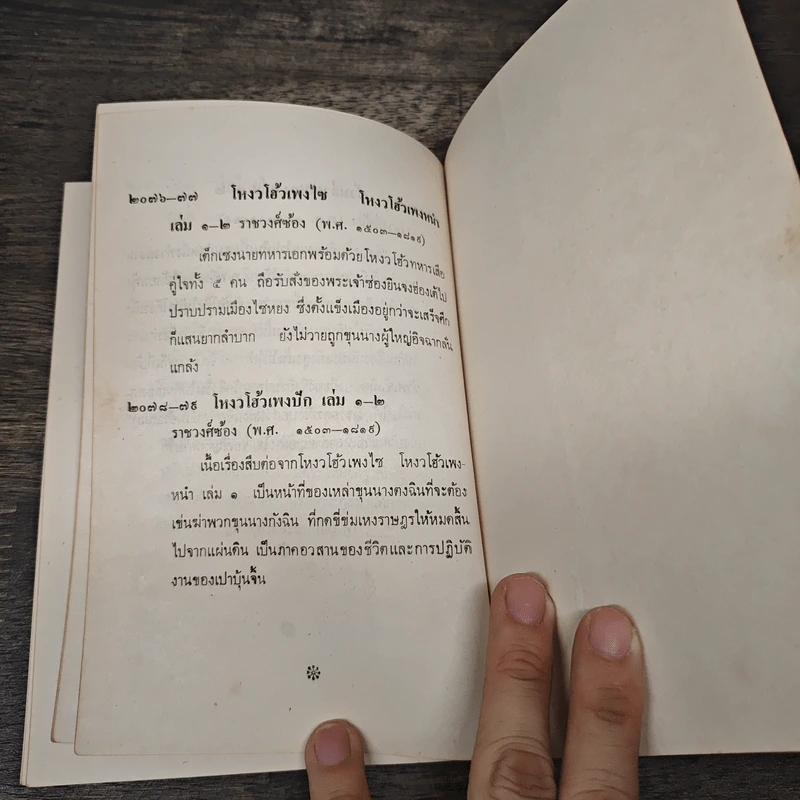 ๒๐๗๖—๗๗ โหงวโฮ้วเพงไซ โหงวโฮ้วเพงหนำ
เล่ม ๑—๒ ราชวงศ์ซ้อง (พ.ศ. ๑๕๐๓—๑๘๑๙)
เต็กเซงนายทหารเอกพร้อมด้วยโหงวโฮ้วทหารเสือ
คู่ใจทั้ง ๕ คน ถือรับสั่งของพระเจ้าซ่องยินจงฮ่องเต้ไป
ปราบปรามเมืองไซหยง ซึ่งตั้งแข็งเมืองอยู่กว่าจะเสร็จศึก
ก็แสนยากลำบาก ยังไม่วายถูกขุนนางผู้ใหญ่อิจฉากลั่น
แกล้ง
๒๐๗๘—๗๙ โหงวโฮ้วเพงปัก เล่ม ๑—๒
ราชวงศ์ซ้อง (พ.ศ. ๑๕๐๓—๑๘๑๙)
เนื้อเรื่องสืบต่อจากโหงวโฮ้วเพงไซ โหงวโฮ้วเพง-
หนำ เล่ม ๑ เป็นหน้าที่ของเหล่าขุนนางตงฉินที่จะต้อง
เข่นฆ่าพวกขุนนางกังฉิน ที่กดขี่ข่มเหงราษฎรให้หมดสิ้น
ไปจากแผ่นดิน เป็นภาคอวสานของชีวิตและการปฏิบัติ
งานของเปาบุ้นจิ้น